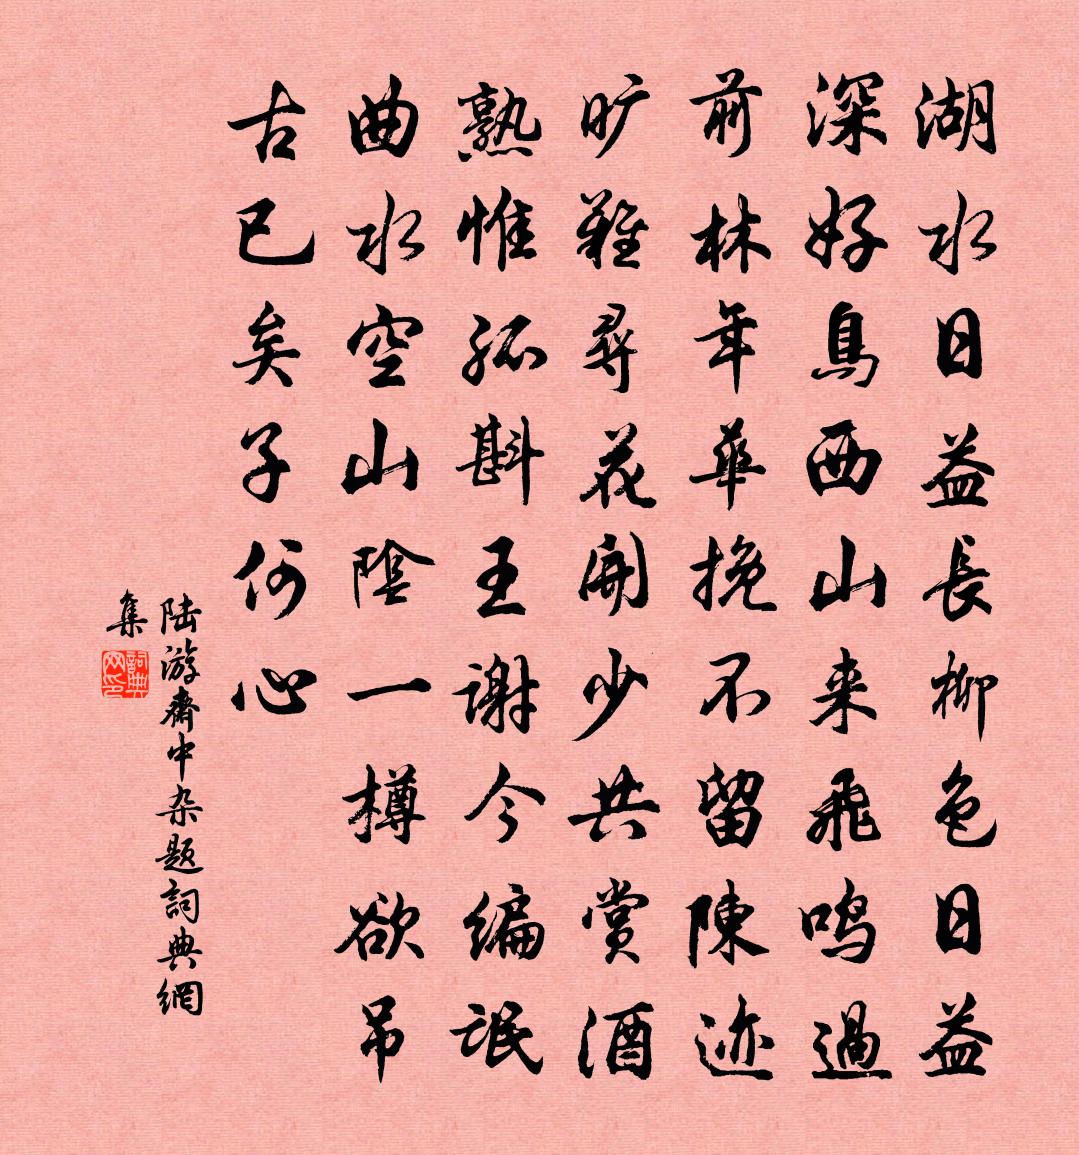 湖水日益長柳色日益
深好鳥西山来飛鳴過
前林年華挽不留陳迹
旷難尋花開少共賞酒
熟惟孤斟王謝今編氓
曲水空山陰一樽欲吊
古已矣子何心
陆游齋中杂题詞典網
集
詞典网印